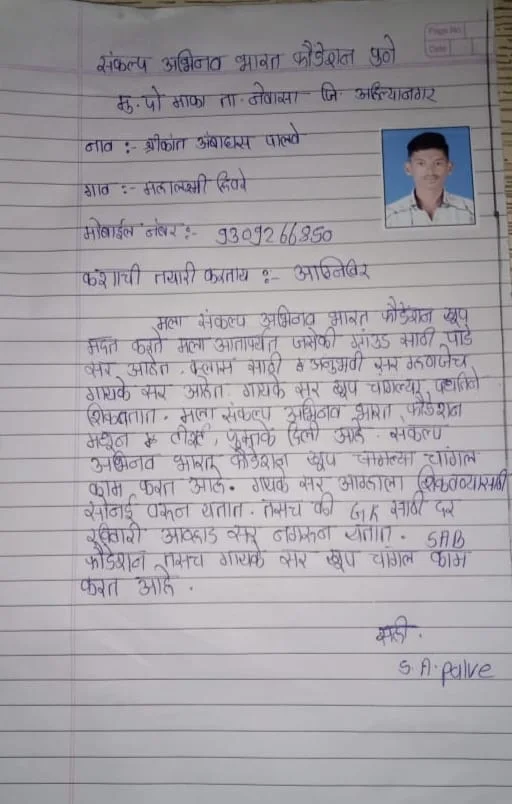 Page No.
Date
संकल्प अभिनव भारत फौंडेशन पुणे
मु. पो माका ता. नेवासा जि. अहिल्यानगर
नाव :- श्रीकांत अंबादास पालवे
गाव :- महालक्ष्मी हिवरे
मोबाईल नंबर :- 9309266850
कशाची तयारी करताय :- अग्निविर
मला संकल्प अभिनव भारत फौंडेशन खूप
मदत करते मला आतापर्यंत जसेकी ग्राउंड साठी पांडे
सर आहेत. क्लास साठी अनुभवी सर म्हणजेच
गायके सर आहेत. गायके सर खूप चांगल्या पध्दतीने
शिकवतात. मला संकल्प अभिनव भारत फौंडेशन
मधून टीशर्ट, पुस्तके दिली आहे. संकल्प
अभिनव भारत फौंडेशन खूप चांगल्या चांगल
काम करत आहे. गायके सर आम्हाला शिकवण्यासाठी
सोनई वरून येतात. तसेच की GK साठी दर
रविवारी आव्हाड सर नगरून येतात. SAB
फौंडेशन तसेच गायके सर खूप चांगल काम
करत आहे.
सही.
S.A. palve